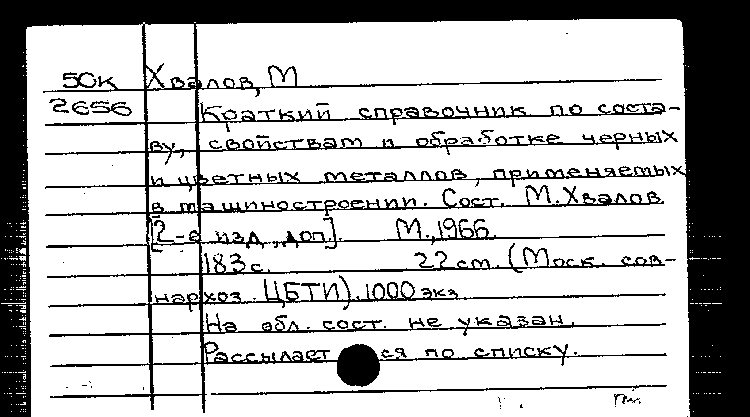 50К Хвалов, М
2656 Краткий справочник по соста-
ву, свойствам и обработке черных
и цветных металлов, применяемых
в машиностроении. Сост. М. Хвалов.
[2-е изд., доп.]. М., 1966.
183 с. 22 см. (Моск. сов-
нархоз. ЦБТИ). 1000 экз.
На обл. сост. не указан.
Рассылается по списку.